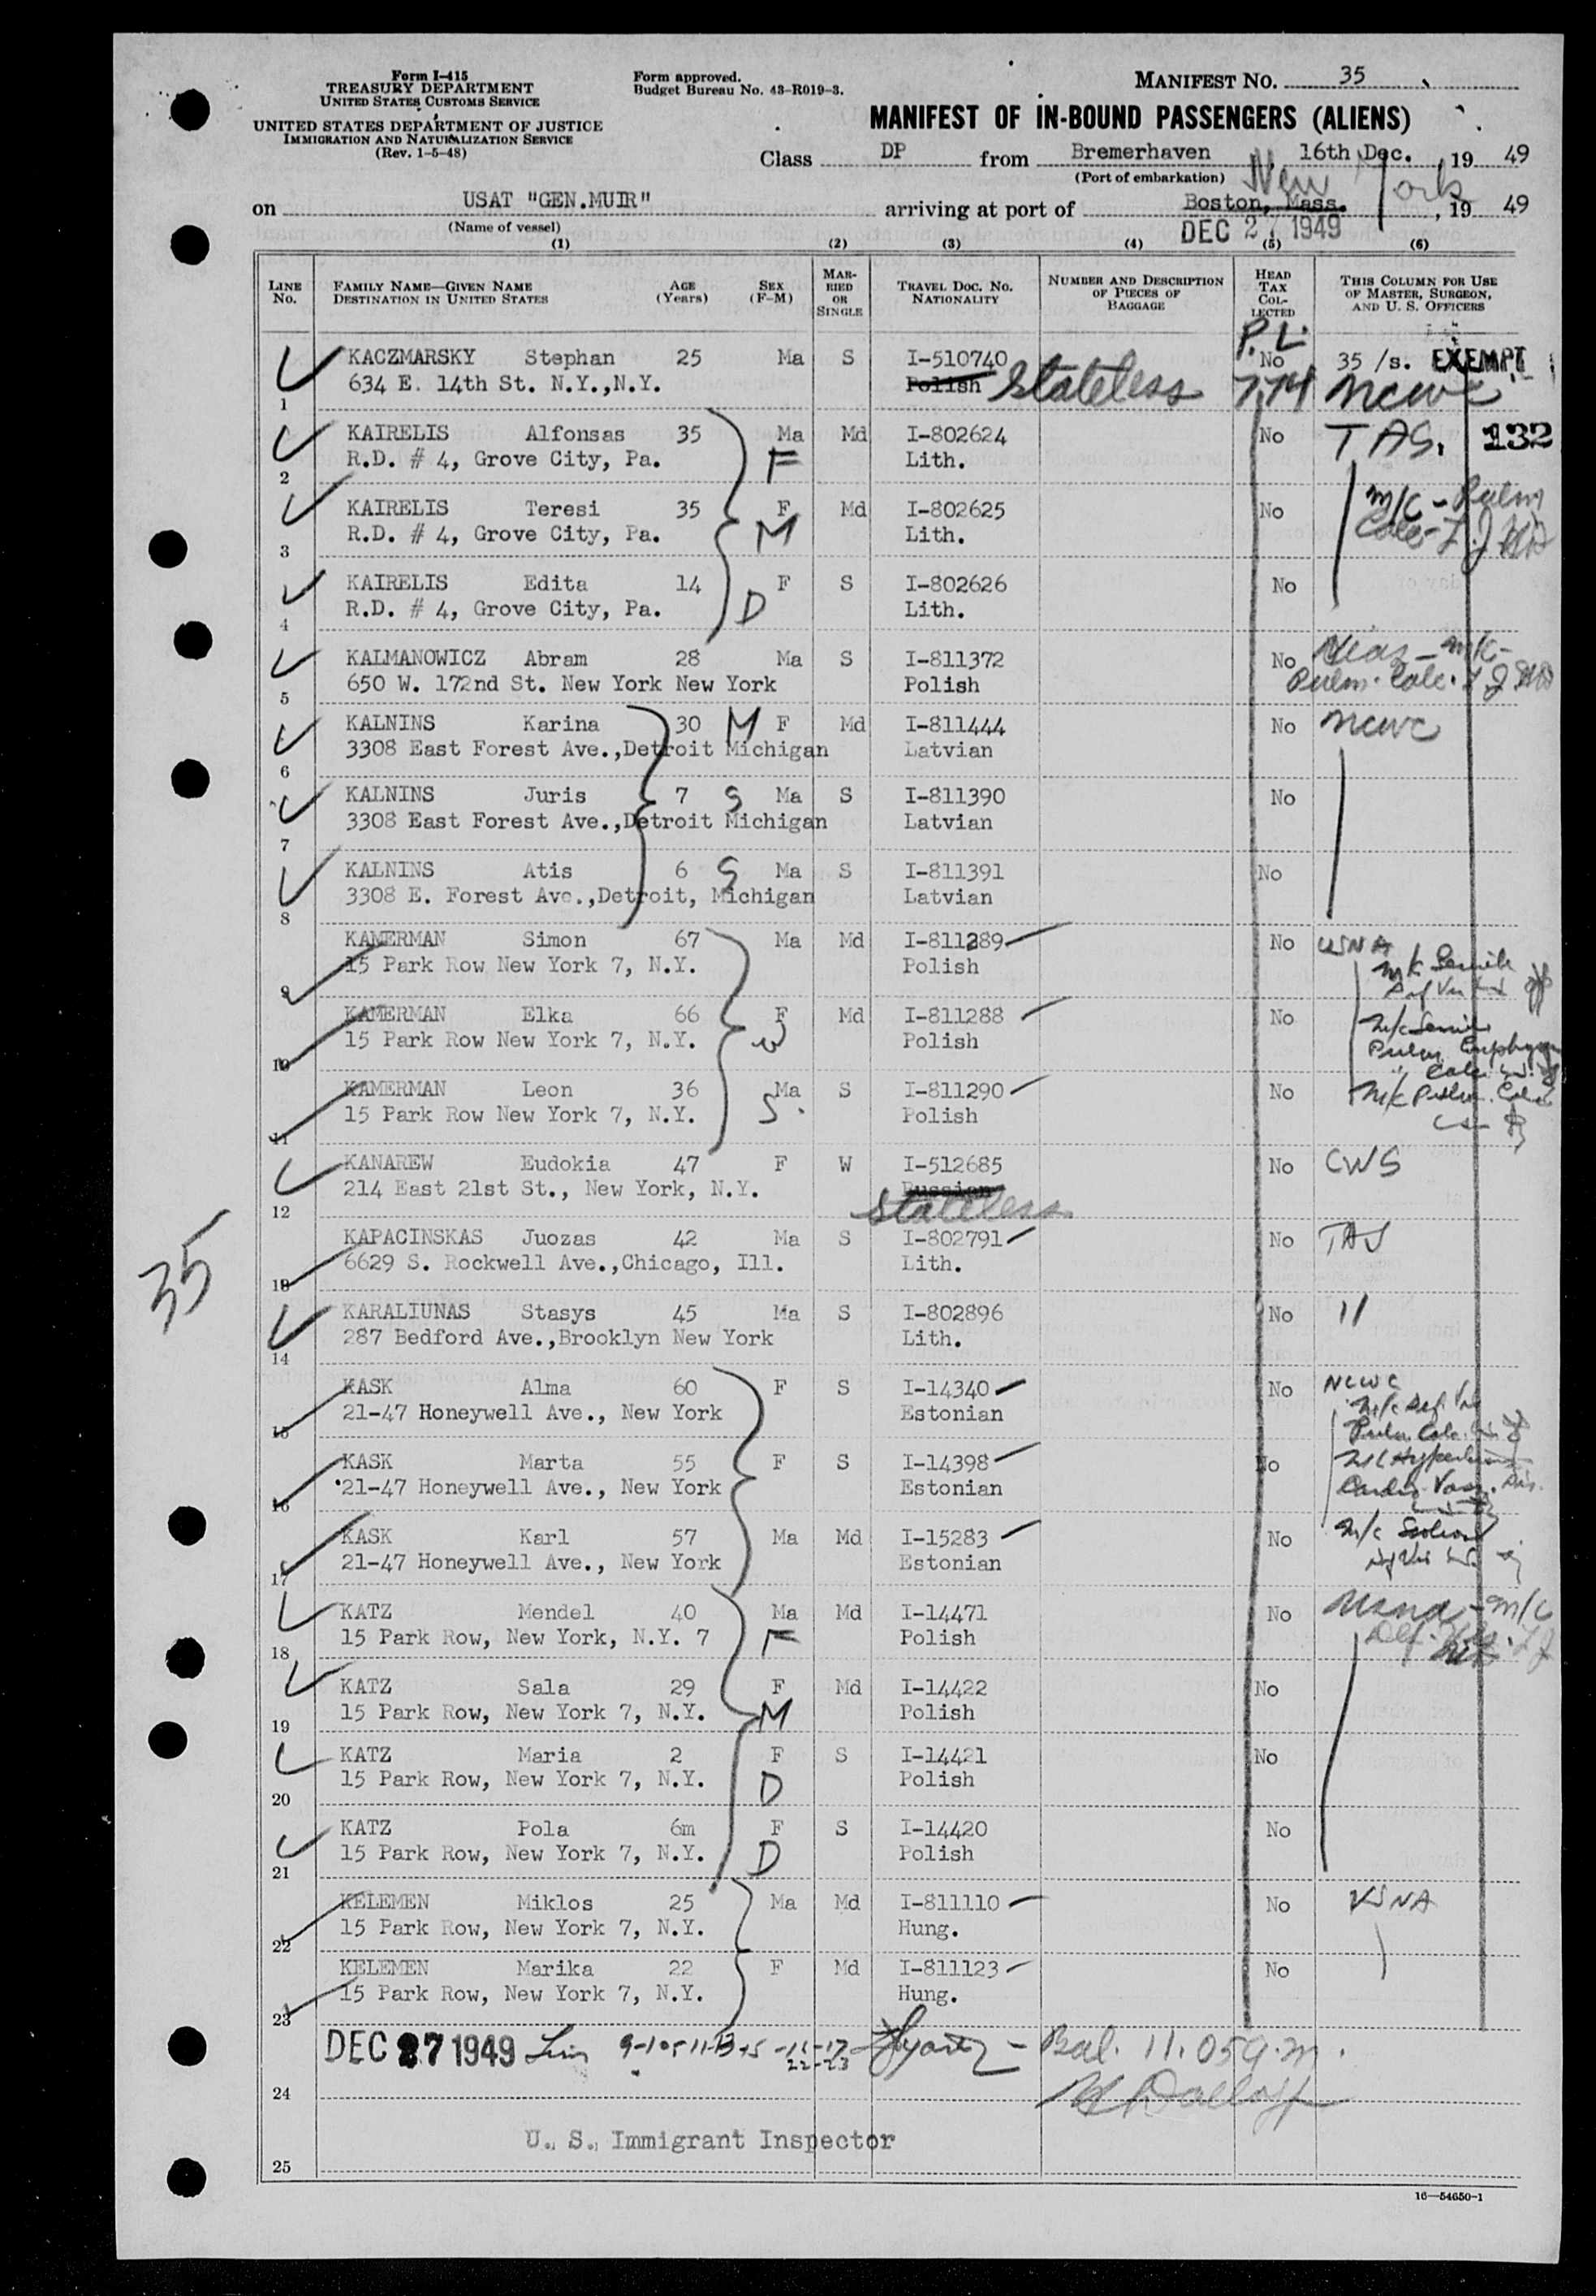 Form I-415
TREASURY DEPARTMENT
UNITED STATES CUSTOMS SERVICE
UNITED STATES DEPARTMENT OF JUSTICE
IMMIGRATION AND NATURALIZATION SERVICE
(Rev. 1-5-48)
Form approved.
Budget Bureau No. 43-R019-3.
MANIFEST No. 35
MANIFEST OF IN-BOUND PASSENGERS (ALIENS)
Class DP from Bremerhaven, 16th Dec., 19 49
(Port of embarkation)
New York
on USAT "GEN.MUIR" arriving at port of Boston, Mass., 19 49
(Name of vessel)
DEC 27 1949
(1) (2) (3) (4) (5) (6)
LINE No. FAMILY NAME—GIVEN NAME DESTINATION IN UNITED STATES AGE (Years) SEX (F-M) MARRIED OR SINGLE TRAVEL DOC. No. NATIONALITY NUMBER AND DESCRIPTION OF PIECES OF BAGGAGE HEAD TAX COLLECTED THIS COLUMN FOR USE OF MASTER, SURGEON, AND U. S. OFFICERS
P.L.
774
KACZMARSKY Stephan 25 Ma S I-510740 No 35 /s. EXEMPT
1 634 E. 14th St. N.Y.,N.Y. Polish Stateless NCWC
KAIRELIS Alfonsas 35 Ma Md I-802624 No T AS. 132
2 R.D. # 4, Grove City, Pa. F Lith.
KAIRELIS Teresi 35 F Md I-802625 No M/C - Pulm
3 R.D. # 4, Grove City, Pa. M Lith. Calc-
KAIRELIS Edita 14 F S I-802626 No
4 R.D. # 4, Grove City, Pa. D Lith.
KALMANOWICZ Abram 28 Ma S I-811372 No Hias - M/C-
5 650 W. 172nd St. New York New York Polish Pulm. Calc.
KALNINS Karina 30 M F Md I-811444 No NCWC
6 3308 East Forest Ave.,Detroit Michigan Latvian
KALNINS Juris 7 S Ma S I-811390 No
7 3308 East Forest Ave.,Detroit Michigan Latvian
KALNINS Atis 6 S Ma S I-811391 No
8 3308 E. Forest Ave.,Detroit, Michigan Latvian
KAMERMAN Simon 67 Ma Md I-811289 No USNA
9 15 Park Row New York 7, N.Y. Polish M/C Senile
KAMERMAN Elka 66 F Md I-811288 No M/C
10 15 Park Row New York 7, N.Y. W Polish Pulm
KAMERMAN Leon 36 Ma S I-811290 No M/C Pulm. Calc
11 15 Park Row New York 7, N.Y. S. Polish
KANAREW Eudokia 47 F W I-512685 No CWS
12 214 East 21st St., New York, N.Y. Russian Stateless
KAPACINSKAS Juozas 42 Ma S I-802791 No TAS
13 6629 S. Rockwell Ave.,Chicago, Ill. Lith.
35
KARALIUNAS Stasys 45 Ma S I-802896 No "
14 287 Bedford Ave.,Brooklyn New York Lith.
KASK Alma 60 F S I-14340 No NCWC
15 21-47 Honeywell Ave., New York Estonian M/C Def. Pulm. Calc.
KASK Marta 55 F S I-14398 No M/C
16 21-47 Honeywell Ave., New York Estonian Cardio Vasc. Dis.
KASK Karl 57 Ma Md I-15283 No M/C
17 21-47 Honeywell Ave., New York Estonian
KATZ Mendel 40 Ma Md I-14471 No USNA - M/C
18 15 Park Row, New York, N.Y. 7 F Polish Def.
KATZ Sala 29 F Md I-14422 No
19 15 Park Row, New York 7, N.Y. M Polish
KATZ Maria 2 F S I-14421 No
20 15 Park Row, New York 7, N.Y. D Polish
KATZ Pola 6m F S I-14420 No
21 15 Park Row, New York 7, N.Y. D Polish
KELEMEN Miklos 25 Ma Md I-811110 No USNA
22 15 Park Row, New York 7, N.Y. Hung.
KELEMEN Marika 22 F Md I-811123 No
23 15 Park Row, New York 7, N.Y. Hung.
DEC 27 1949 22-23 Bal. 11.05 a.m.
24
U. S. Immigrant Inspector
25
16—54650-1